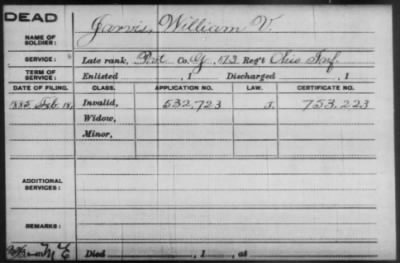 DEAD
NAME OF SOLDIER: Jarvis, William V.
SERVICE: Late rank, Pvt Co. G, 173 Reg't Ohio Inf.
TERM OF SERVICE: Enlisted , 1 Discharged , 1
DATE OF FILING. CLASS. APPLICATION NO. LAW. CERTIFICATE NO.
1885 Feb. 18, Invalid, 532,723 753,223
Widow,
Minor,
ADDITIONAL SERVICES:
REMARKS:
Died , 1 , at